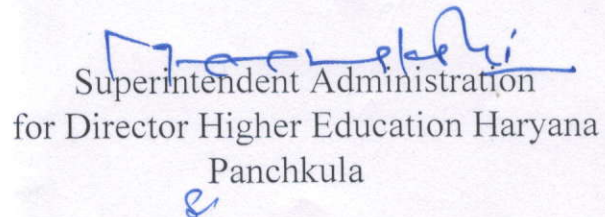 Meenakshi
Superintendent Administration
for Director Higher Education Haryana
Panchkula